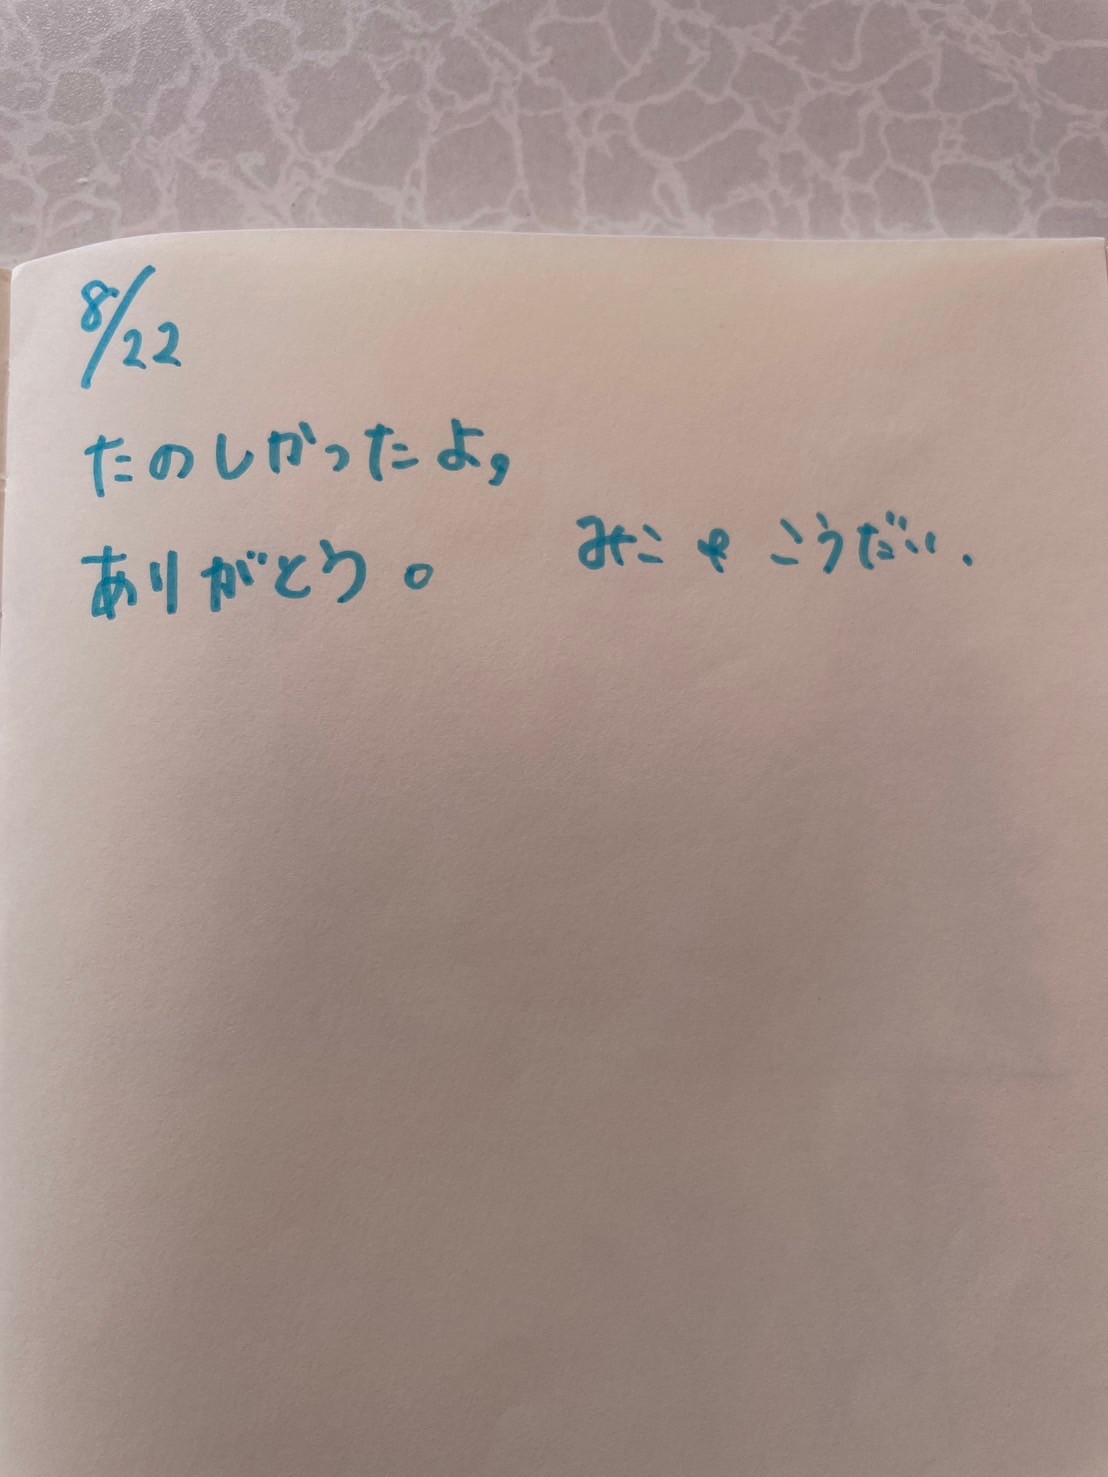 8/22
たのしかったよ,
ありがとう。
みこ & こうだい.